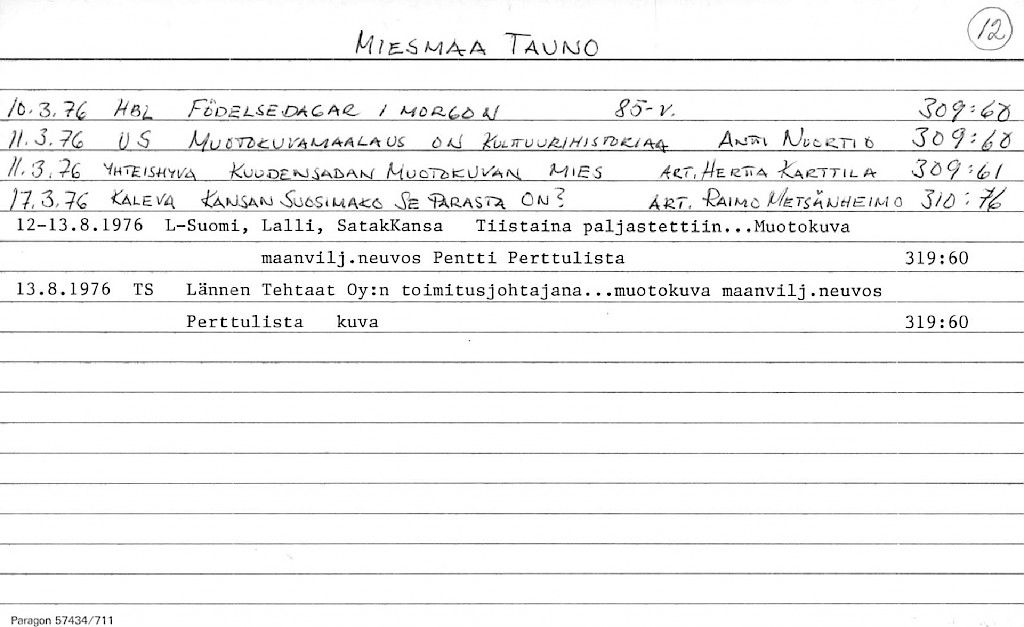 MIESMAA TAUNO 12
10.3.76 HBL FÖDELSEDAGAR I MORGON 85-V. 309:60
11.3.76 US MUOTOKUVAMAALAUS ON KULTTUURIHISTORIAA ANTTI NUORTIO 309:60
11.3.76 YHTEISHYVÄ KUUDENSADAN MUOTOKUVAN MIES ART. HERTTA KARTTILA 309:61
17.3.76 KALEVA KANSAN SUOSIMAKO SE PARASTA ON? ART. RAIMO METSÄNHEIMO 310:76
12-13.8.1976 L-Suomi, Lalli, SatakKansa Tiistaina paljastettiin...Muotokuva
maanvilj.neuvos Pentti Perttulista 319:60
13.8.1976 TS Lännen Tehtaat Oy:n toimitusjohtajana...muotokuva maanvilj.neuvos
Perttulista kuva 319:60
Paragon 57434/711